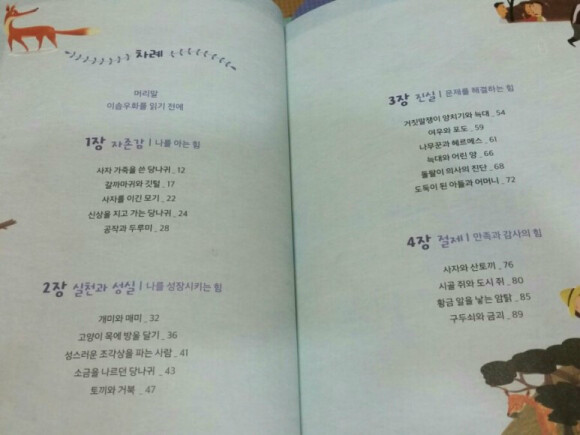 차례
머리말
이솝우화를 읽기 전에
1장 자존감 | 나를 아는 힘
사자 가죽을 쓴 당나귀 _ 12
갈까마귀와 깃털 _ 17
사자를 이긴 모기 _ 22
신상을 지고 가는 당나귀 _ 24
공작과 두루미 _ 28
2장 실천과 성실 | 나를 성장시키는 힘
개미와 매미 _ 32
고양이 목에 방울 달기 _ 36
성스러운 조각상을 파는 사람 _ 41
소금을 나르던 당나귀 _ 43
토끼와 거북 _ 47
3장 진실 | 문제를 해결하는 힘
거짓말쟁이 양치기와 늑대 _ 54
여우와 포도 _ 59
나무꾼과 헤르메스 _ 61
늑대와 어린 양 _ 66
돌팔이 의사의 진단 _ 68
도둑이 된 아들과 어머니 _ 72
4장 절제 | 만족과 감사의 힘
사자와 산토끼 _ 76
시골 쥐와 도시 쥐 _ 80
황금 알을 낳는 암탉 _ 85
구두쇠와 금괴 _ 89